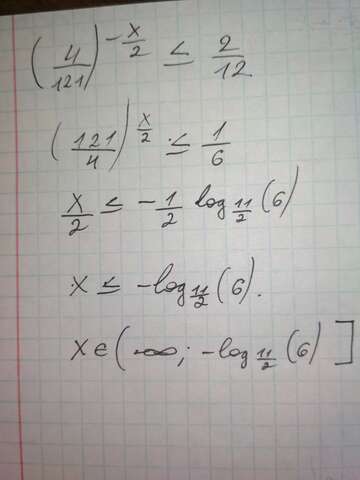 (4/121)^(-x/2) ≤ 2/12
(121/4)^(x/2) ≤ 1/6
x/2 ≤ -1/2 log_(11/2) (6)
x ≤ -log_(11/2) (6).
x ∈ (-∞; -log_(11/2) (6)]